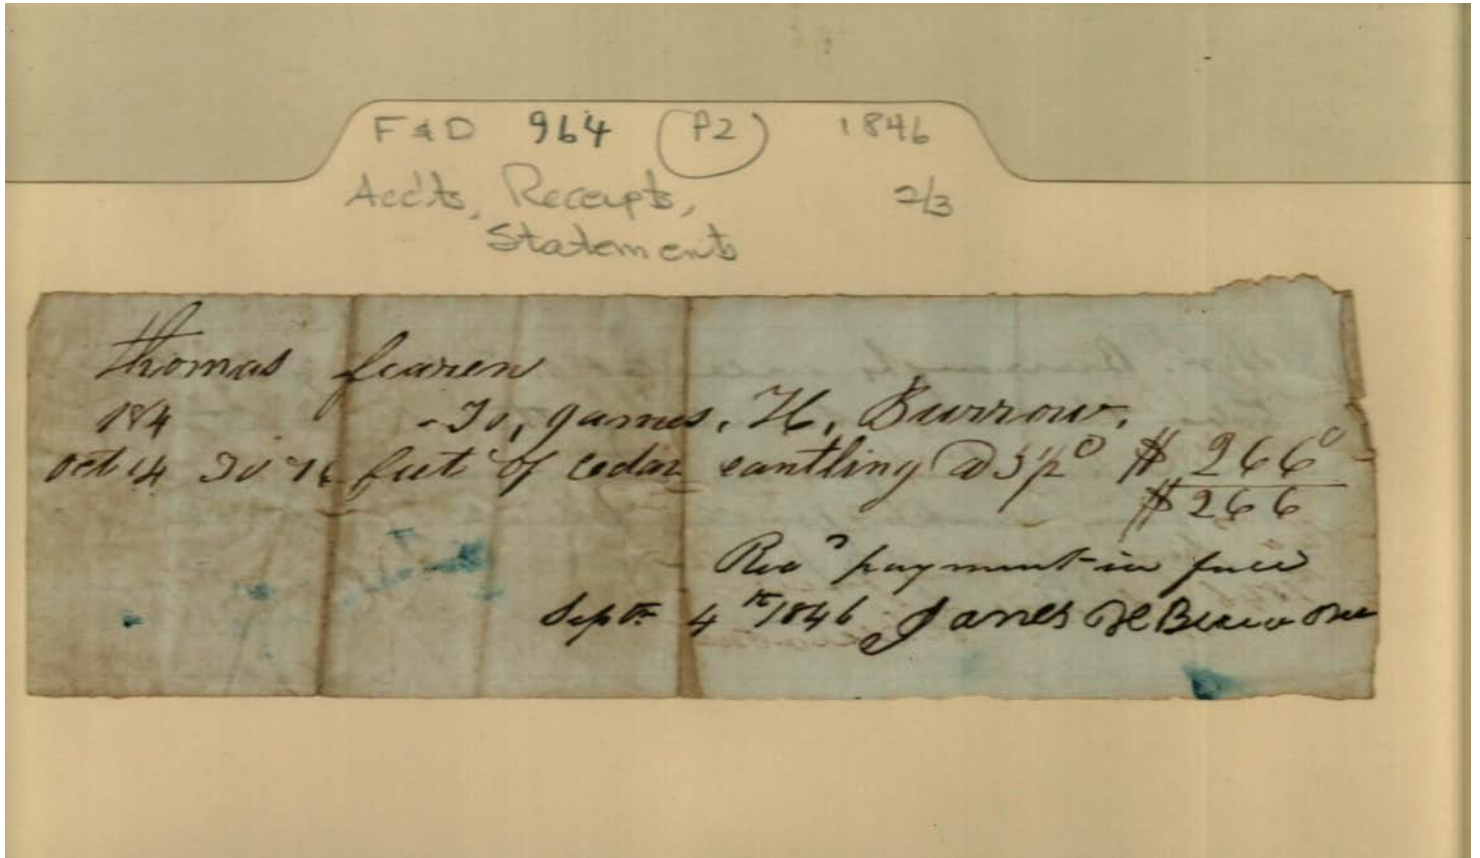 F & D 964 (P2) 1846
Acc'ts, Receipts, 2/3
Statements
thomas fearen
184 - To, James, H, Burrow,
oct 14 To 76 feet of cedar scantling @ 3½ c $ 266
$ 266
Recd payment in full
Septm 4th 1846 James H Burrow